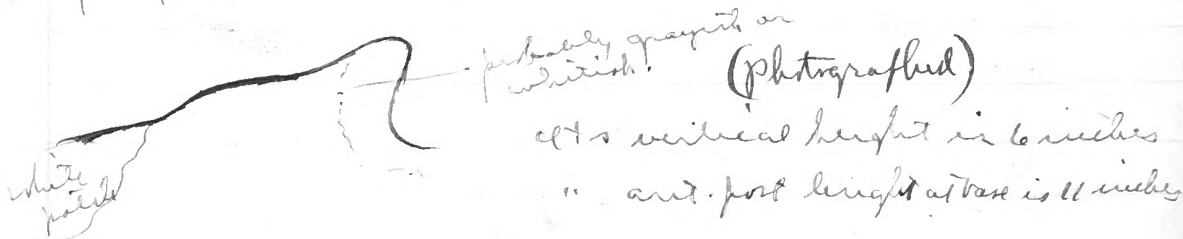 probably grayish or
whitish.
(photografhed)
Its vertical height is 6 inches
" ant. post lenght at base is 11 inches
white
patch